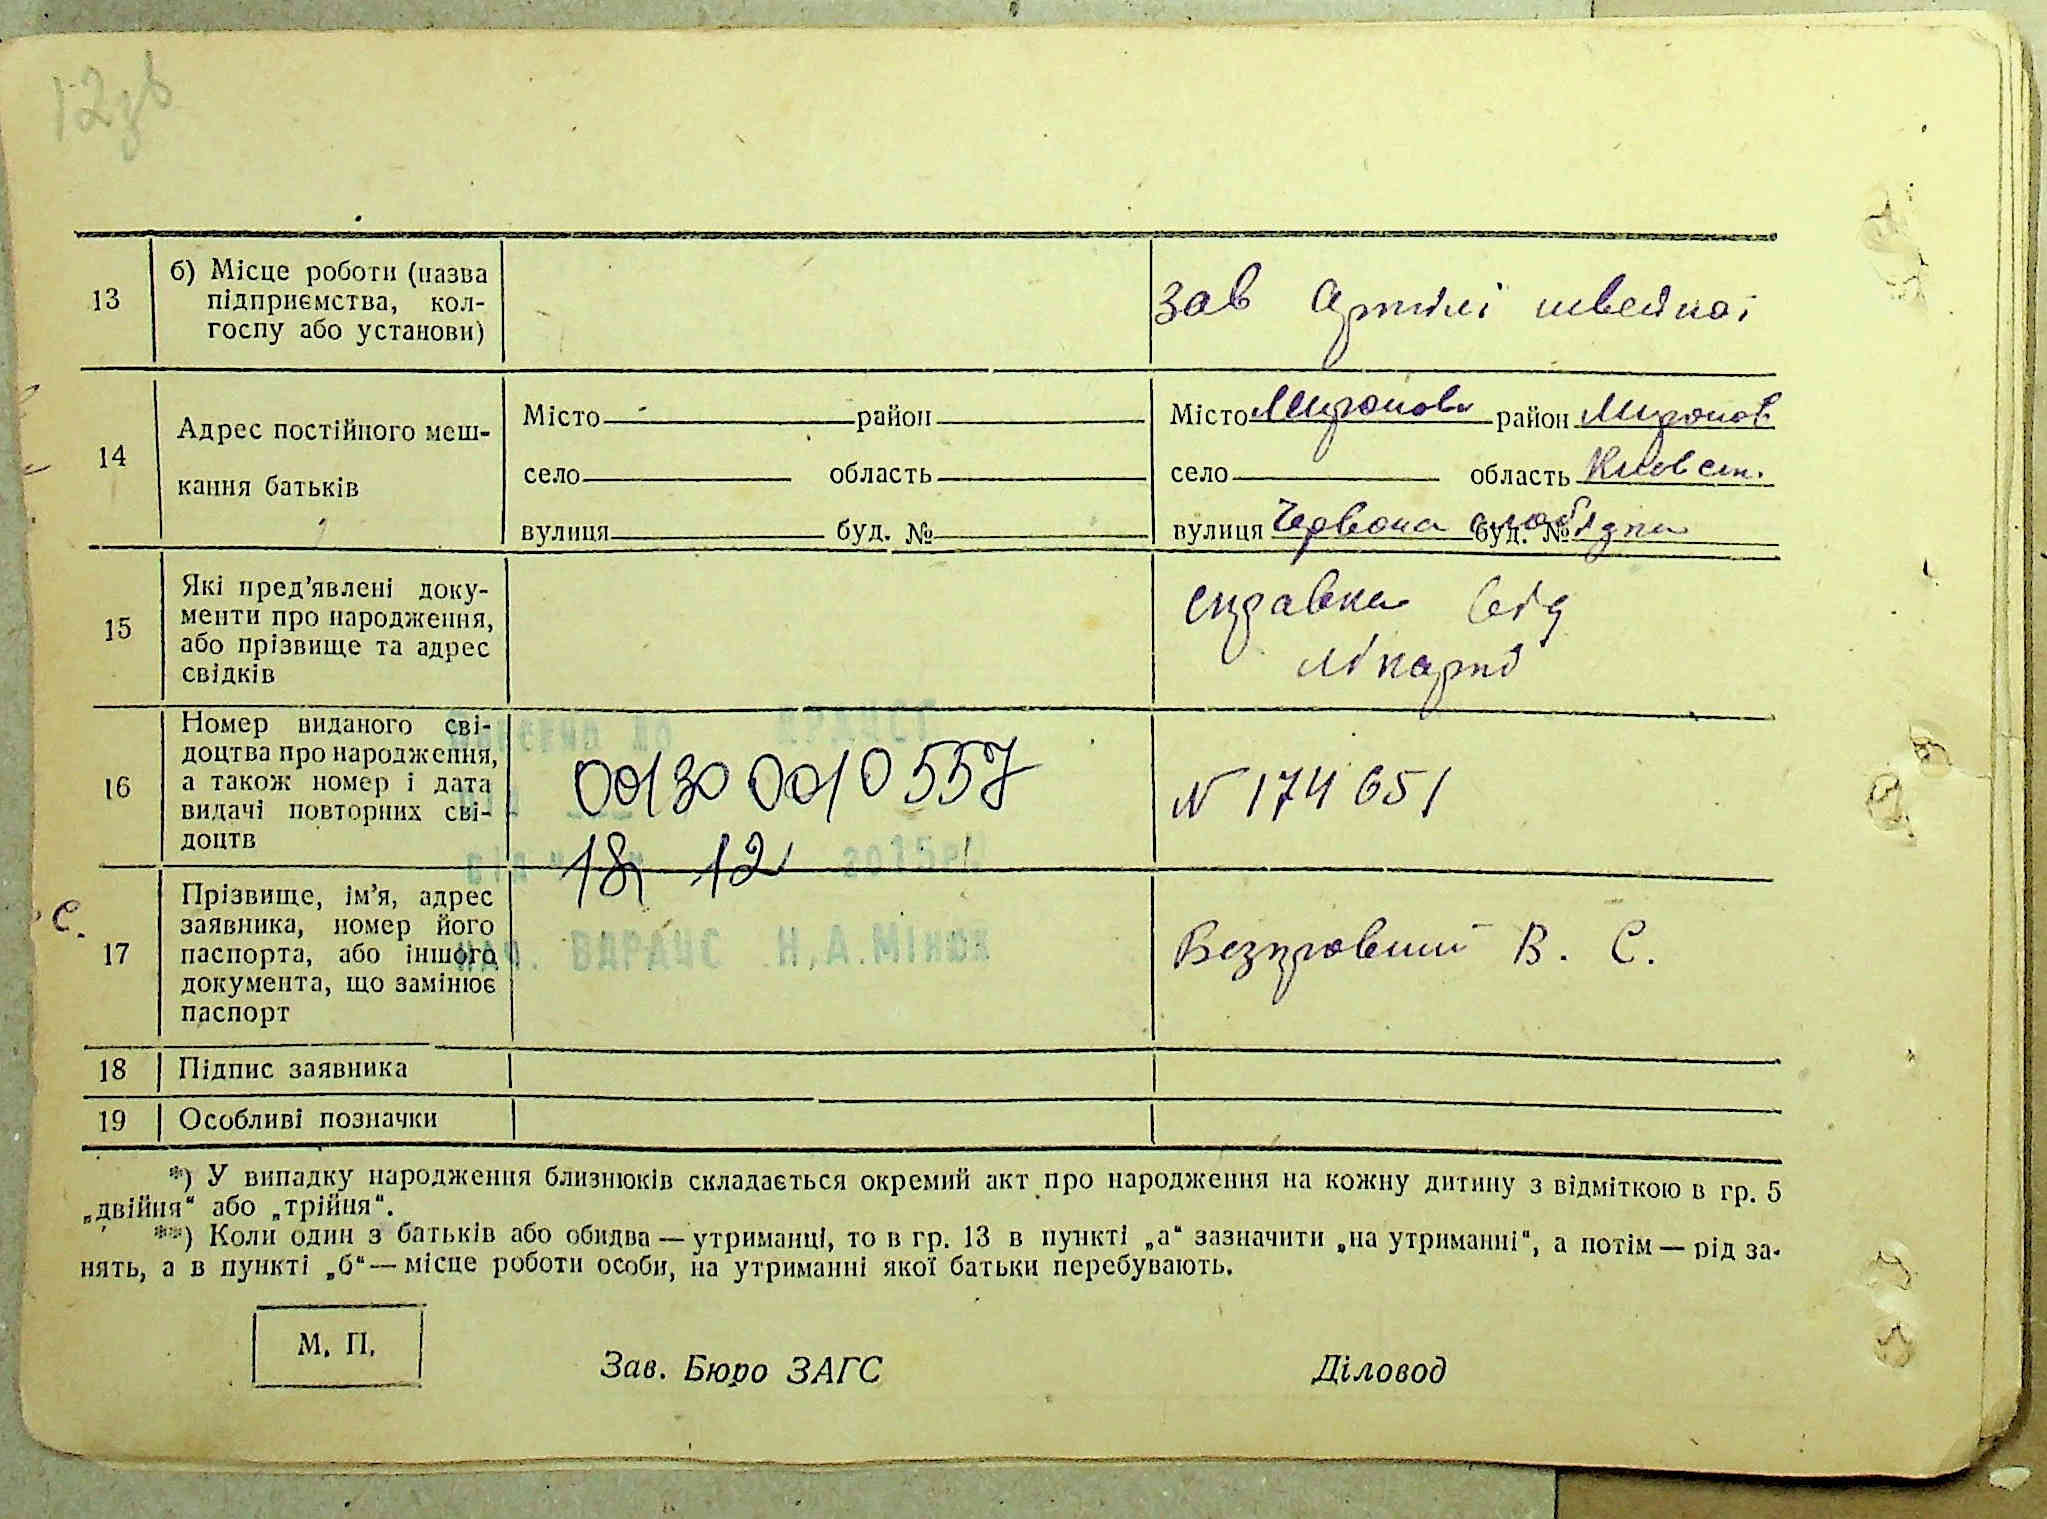 12зв
13 б) Місце роботи (назва
підприємства, кол-
госпу або установи)
зав Артілі швейної
14 Адрес постійного меш-
кання батьків
Місто район
село область
вулиця буд. №
Місто Миронов район Миронов
село область Київськ.
вулиця Червона слобідка буд. №
15 Які пред'явлені доку-
менти про народження,
або прізвище та адрес
свідків
справка від
лікарні
16 Номер виданого сві-
доцтва про народження,
а також номер і дата
видачі повторних сві-
доцтв
Внесено до ДРАЦСГ
00130010557
18 12 2015р.
№ 174651
17 Прізвище, ім'я, адрес
заявника, номер його
паспорта, або іншого
документа, що замінює
паспорт
нач. ВДРАЦС Н.А.Мінюк
В. С.
С.
18 Підпис заявника
19 Особливі позначки
*) У випадку народження близнюків складається окремий акт про народження на кожну дитину з відміткою в гр. 5
„двійня“ або „трійня“.
**) Коли один з батьків або обидва — утриманці, то в гр. 13 в пункті „а“ зазначити „на утриманні“, а потім — рід за-
нять, а в пункті „б“ — місце роботи особи, на утриманні якої батьки перебувають.
М. П.
Зав. Бюро ЗАГС
Діловод